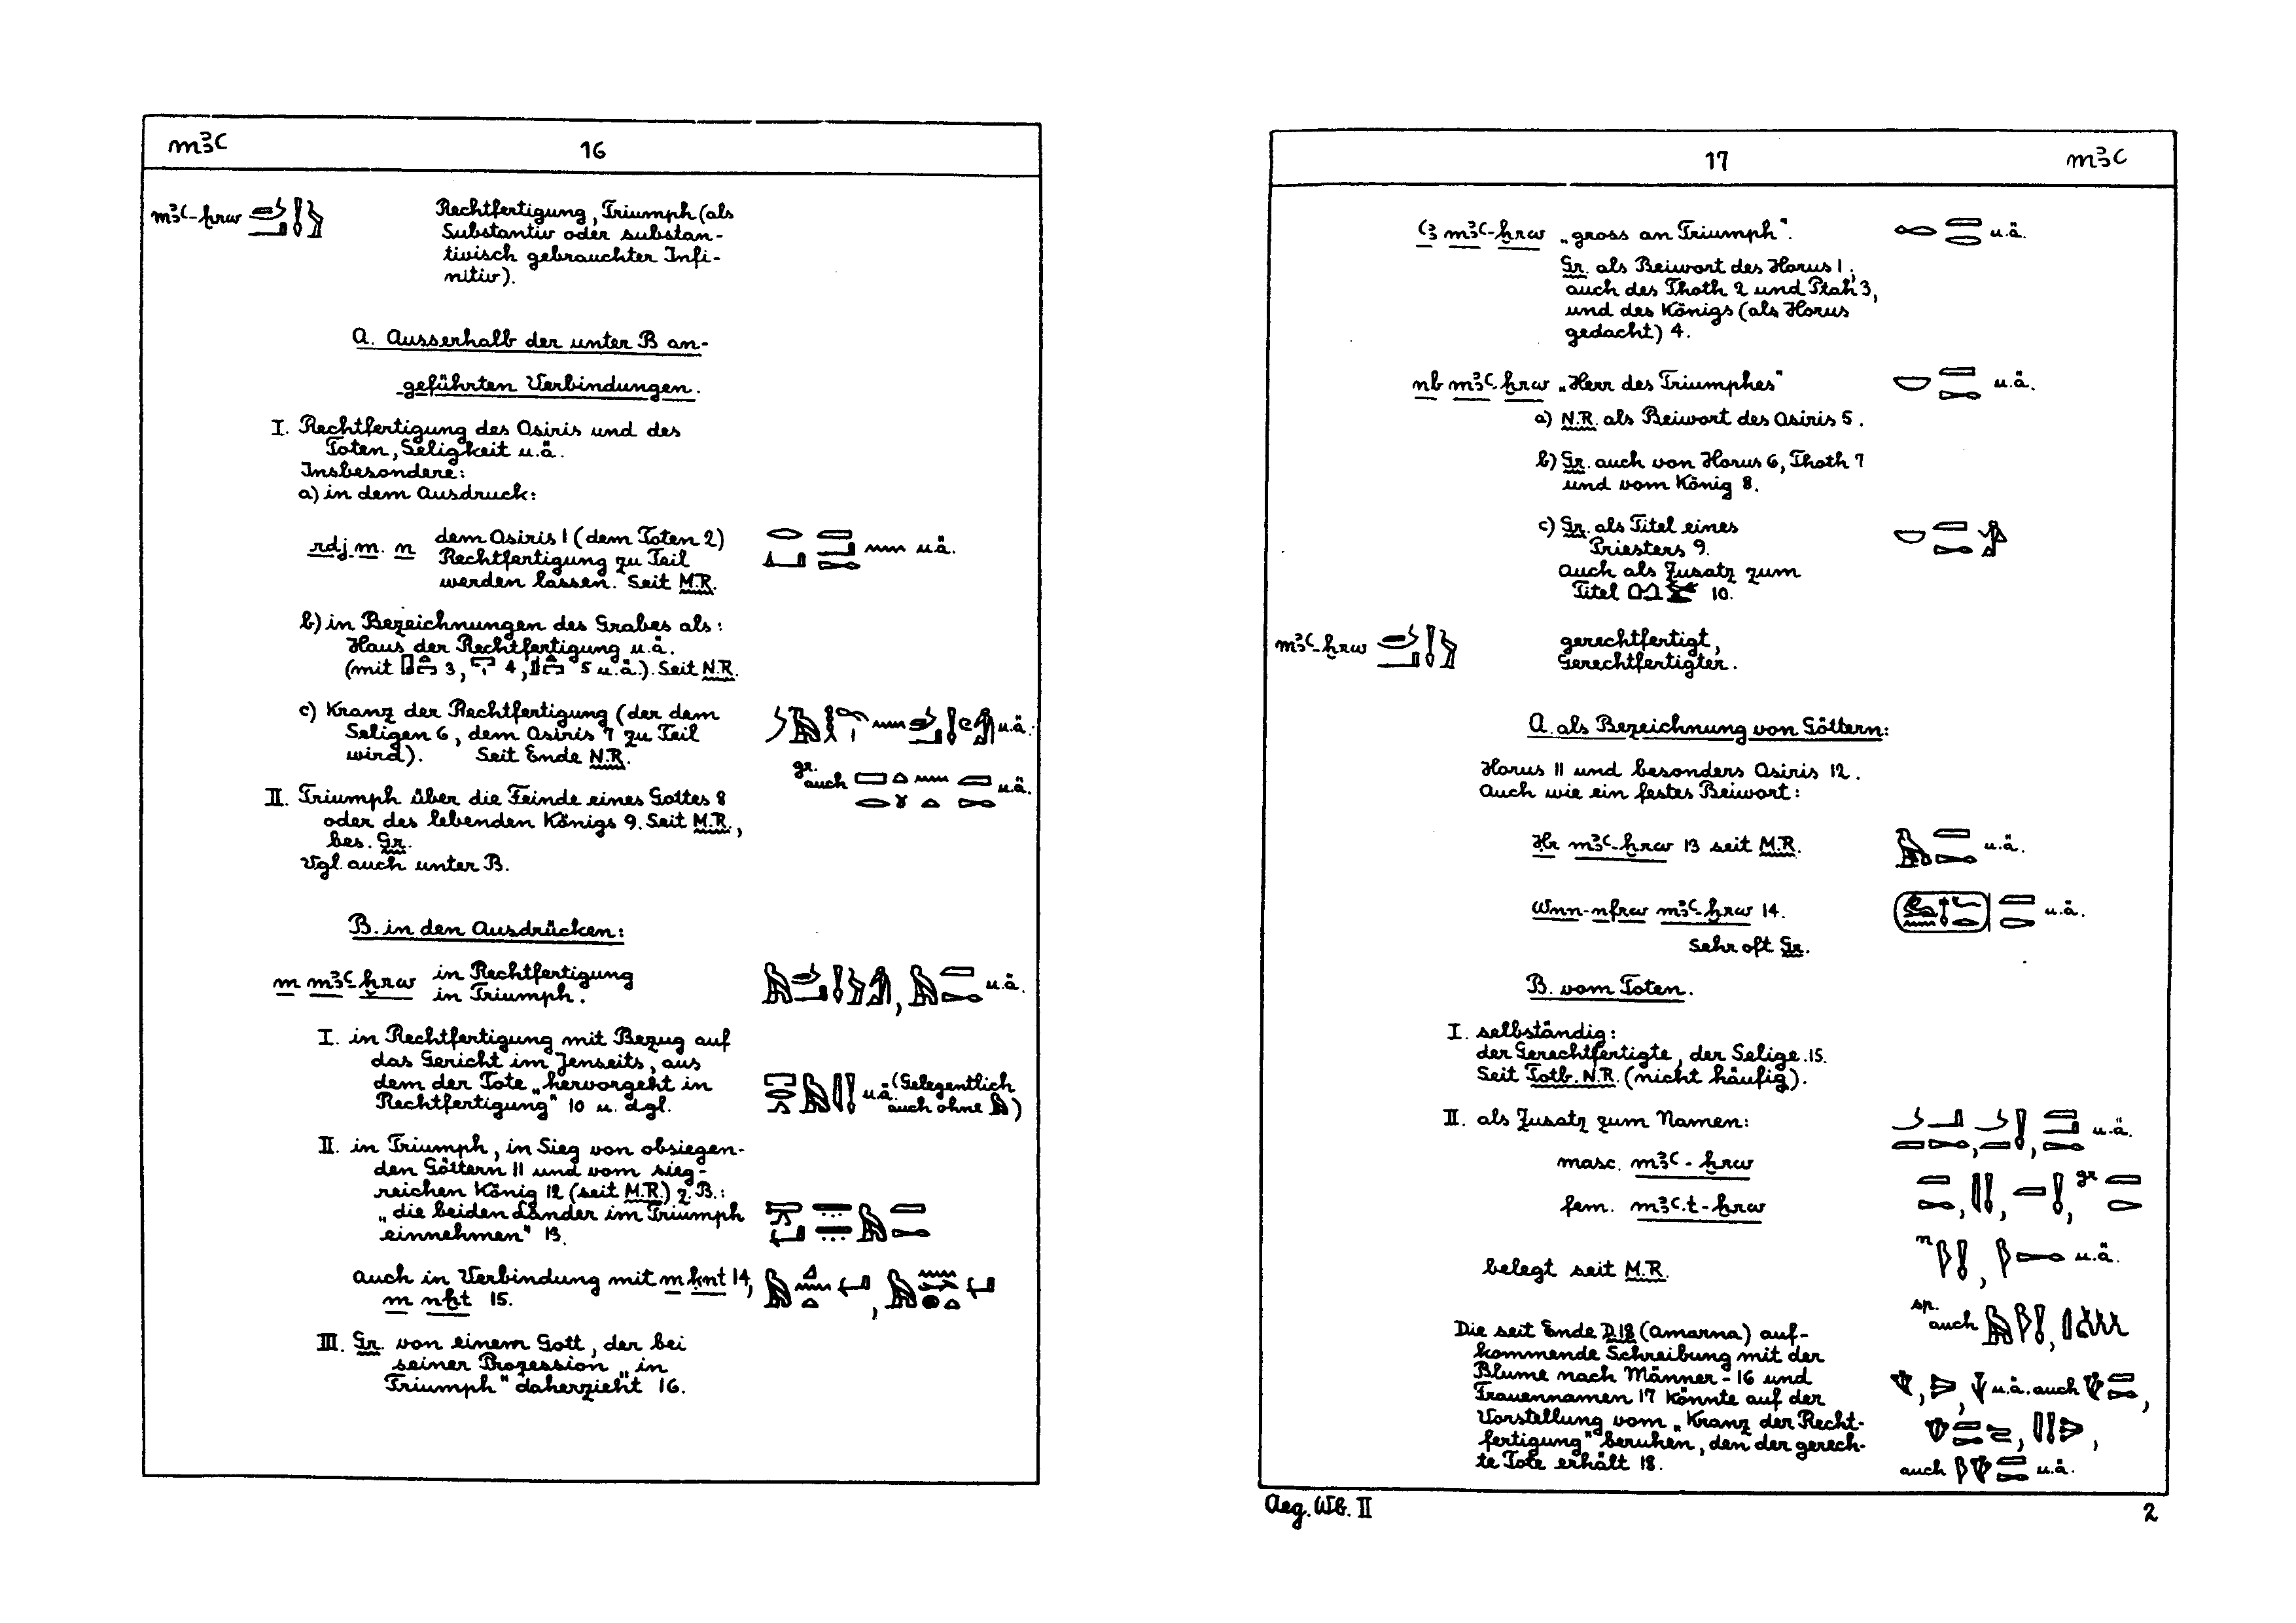 mꜣꜥ
16
mꜣꜥ-ḫrw Rechtfertigung, Triumph (als
Substantiv oder substan-
tivisch gebrauchter Infi-
nitiv).
A. Ausserhalb der unter B an-
geführten Verbindungen.
I. Rechtfertigung des Osiris und des
Toten, Seligkeit u.ä.
Insbesondere:
a) in dem Ausdruck:
rdj m. n dem Osiris 1 (dem Toten 2) u.ä.
Rechtfertigung zu Teil
werden lassen. Seit M.R.
b) in Bezeichnungen des Grabes als:
Haus der Rechtfertigung u.ä.
(mit 3, 4, 5 u.ä.). Seit N.R.
c) Kranz der Rechtfertigung (der dem u.ä.
Seligen 6, dem Osiris 7 zu Teil
wird). Seit Ende N.R.
gr. auch u.ä.
II. Triumph über die Feinde eines Gottes 8
oder des lebenden Königs 9. Seit M.R.,
bes. Gr.
Vgl. auch unter B.
B. in den Ausdrücken:
m mꜣꜥ-ḫrw in Rechtfertigung u.ä.
in Triumph.
I. in Rechtfertigung mit Bezug auf
das Gericht im Jenseits, aus
dem der Tote „hervorgeht in u.ä. (Gelegentlich
Rechtfertigung" 10 u. dgl. auch ohne )
II. in Triumph, in Sieg von obsiegen-
den Göttern 11 und vom sieg-
reichen König 12 (seit M.R.) z.B.:
„die beiden Länder im Triumph
einnehmen" 13.
auch in Verbindung mit m ḳnt 14,
m nḫt 15.
III. Gr. von einem Gott, der bei
seiner Prozession „in
Triumph" daherzieht 16.
17
mꜣꜥ
ꜥꜣ mꜣꜥ-ḫrw „gross an Triumph". u.ä.
Gr. als Beiwort des Horus 1;
auch des Thoth 2 und Ptah 3,
und des Königs (als Horus
gedacht) 4.
nb mꜣꜥ-ḫrw „Herr des Triumphes" u.ä.
a) N.R. als Beiwort des Osiris 5.
b) Gr. auch von Horus 6, Thoth 7
und vom König 8.
c) Gr. als Titel eines
Priesters 9.
Auch als Zusatz zum
Titel 10.
mꜣꜥ-ḫrw gerechtfertigt,
Gerechtfertigter.
A. als Bezeichnung von Göttern:
Horus 11 und besonders Osiris 12.
Auch wie ein festes Beiwort:
Ḥr mꜣꜥ-ḫrw 13 seit M.R. u.ä.
Wnn-nfrw mꜣꜥ-ḫrw 14. u.ä.
Sehr oft Gr.
B. vom Toten.
I. selbständig:
der Gerechtfertigte, der Selige. 15.
Seit Totb. N.R. (nicht häufig).
II. als Zusatz zum Namen: u.ä.
masc. mꜣꜥ-ḫrw
fem. mꜣꜥ.t-ḫrw gr
belegt seit M.R. n u.ä.
sp. auch
Die seit Ende D.18 (Amarna) auf-
kommende Schreibung mit der
Blume nach Männer- 16 und u.ä. auch
Frauennamen 17 könnte auf der
Vorstellung vom „Kranz der Recht-
fertigung" beruhen, den der gerech-
te Tote erhält 18. auch u.ä.
Aeg. Wb. II
2